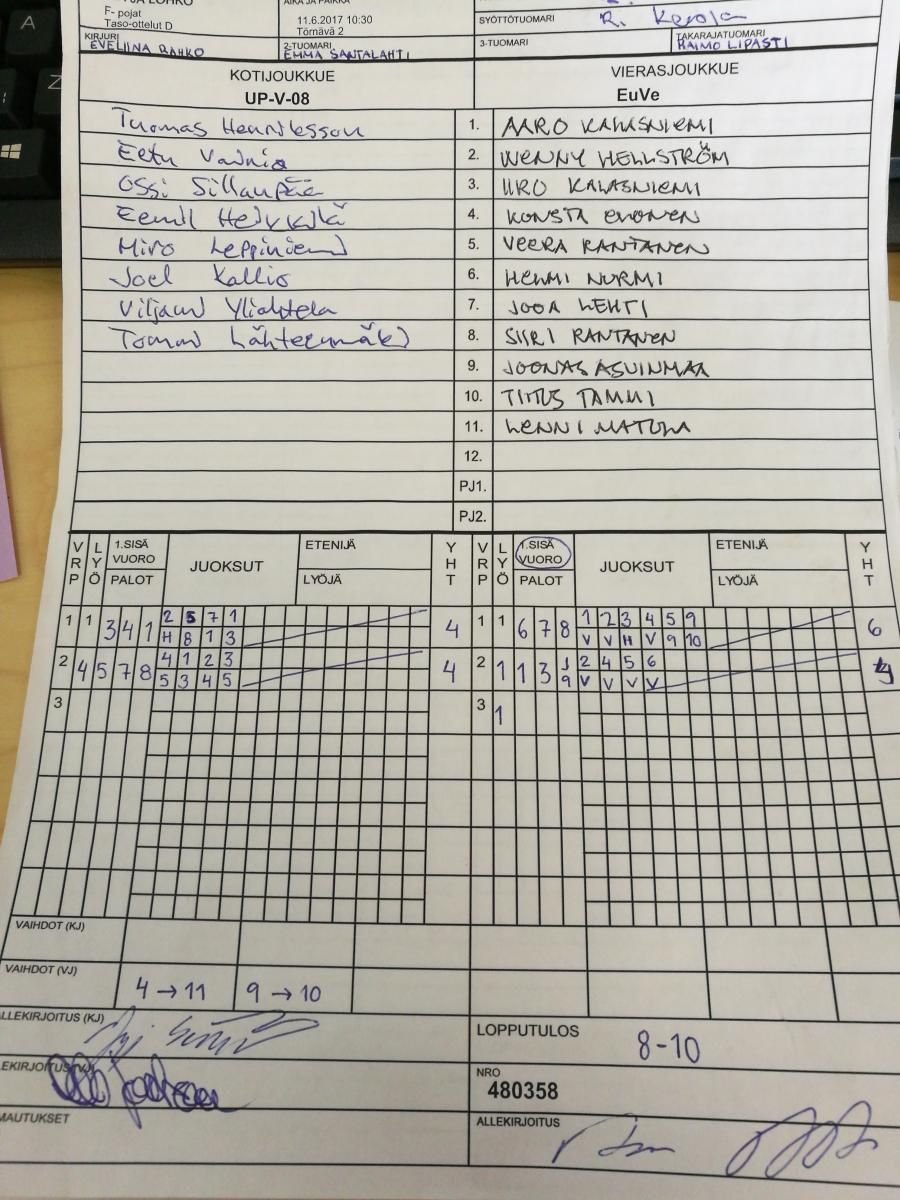 F- pojat
Taso-ottelut D
11.6.2017 10:30
Törnävä 2
SYÖTTÖTUOMARI
R. Kerola
KIRJURI
EVELIINA RAHKO
2-TUOMARI
EMMA SANTALAHTI
3-TUOMARI
TAKARAJATUOMARI
RAIMO LIPASTI
KOTIJOUKKUE
UP-V-08
VIERASJOUKKUE
EuVe
Tuomas Henriksson 1. AARO KALASNIEMI
Eetu Vainio 2. WENNY HELLSTRÖM
Ossi Sillanpää 3. IIRO KALASNIEMI
Eemil Heikkilä 4. KONSTA
Miro Leppiniemi 5. VEERA RANTANEN
Joel Kallio 6. HELMI NURMI
Viljami Yliahtela 7. JOOA LEHTI
Tomas Lähteenmäki 8. SIIRI RANTANEN
9. JOONAS ASUINMAA
10. TIITUS TAMMI
11. LENNI MATULA
12.
PJ1.
PJ2.
VRP LYÖ 1.SISÄ VUORO PALOT JUOKSUT ETENIJÄ LYÖJÄ YHT VRP LYÖ 1.SISÄ VUORO PALOT JUOKSUT ETENIJÄ LYÖJÄ YHT
1 1 3 4 1 2 5 7 1 4 1 1 6 7 8 1 2 3 4 5 9 6
H 8 1 3 V V H V 9 10
2 4 5 7 8 4 1 2 3 4 2 1 1 3 1 2 4 5 6 4
5 3 4 5 9 V V V V
3 3 1
VAIHDOT (KJ)
VAIHDOT (VJ)
4 → 11 9 → 10
ALLEKIRJOITUS (KJ)
LOPPUTULOS
8-10
EKIRJOITUS (VJ)
NRO
480358
MAUTUKSET
ALLEKIRJOITUS